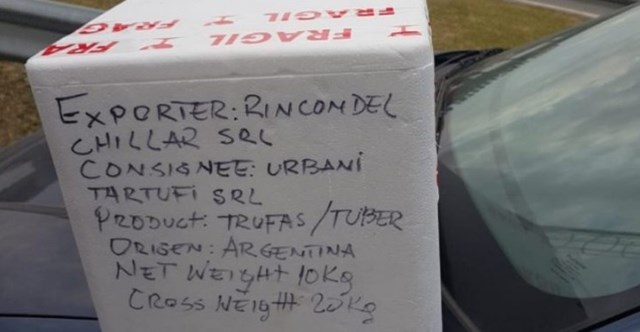 FRAGIL FRAGIL FRAG
FRAGIL FRA
EXPORTER: RINCOMDEL
CHILLAR SRL
CONSIGNEE: URBANI
TARTUFI SRL
PRODUCT: TRUFAS/TUBER
ORIGEN: ARGENTINA
NET WEIGHT 10Kg
CROSS WEIGHT 20Kg